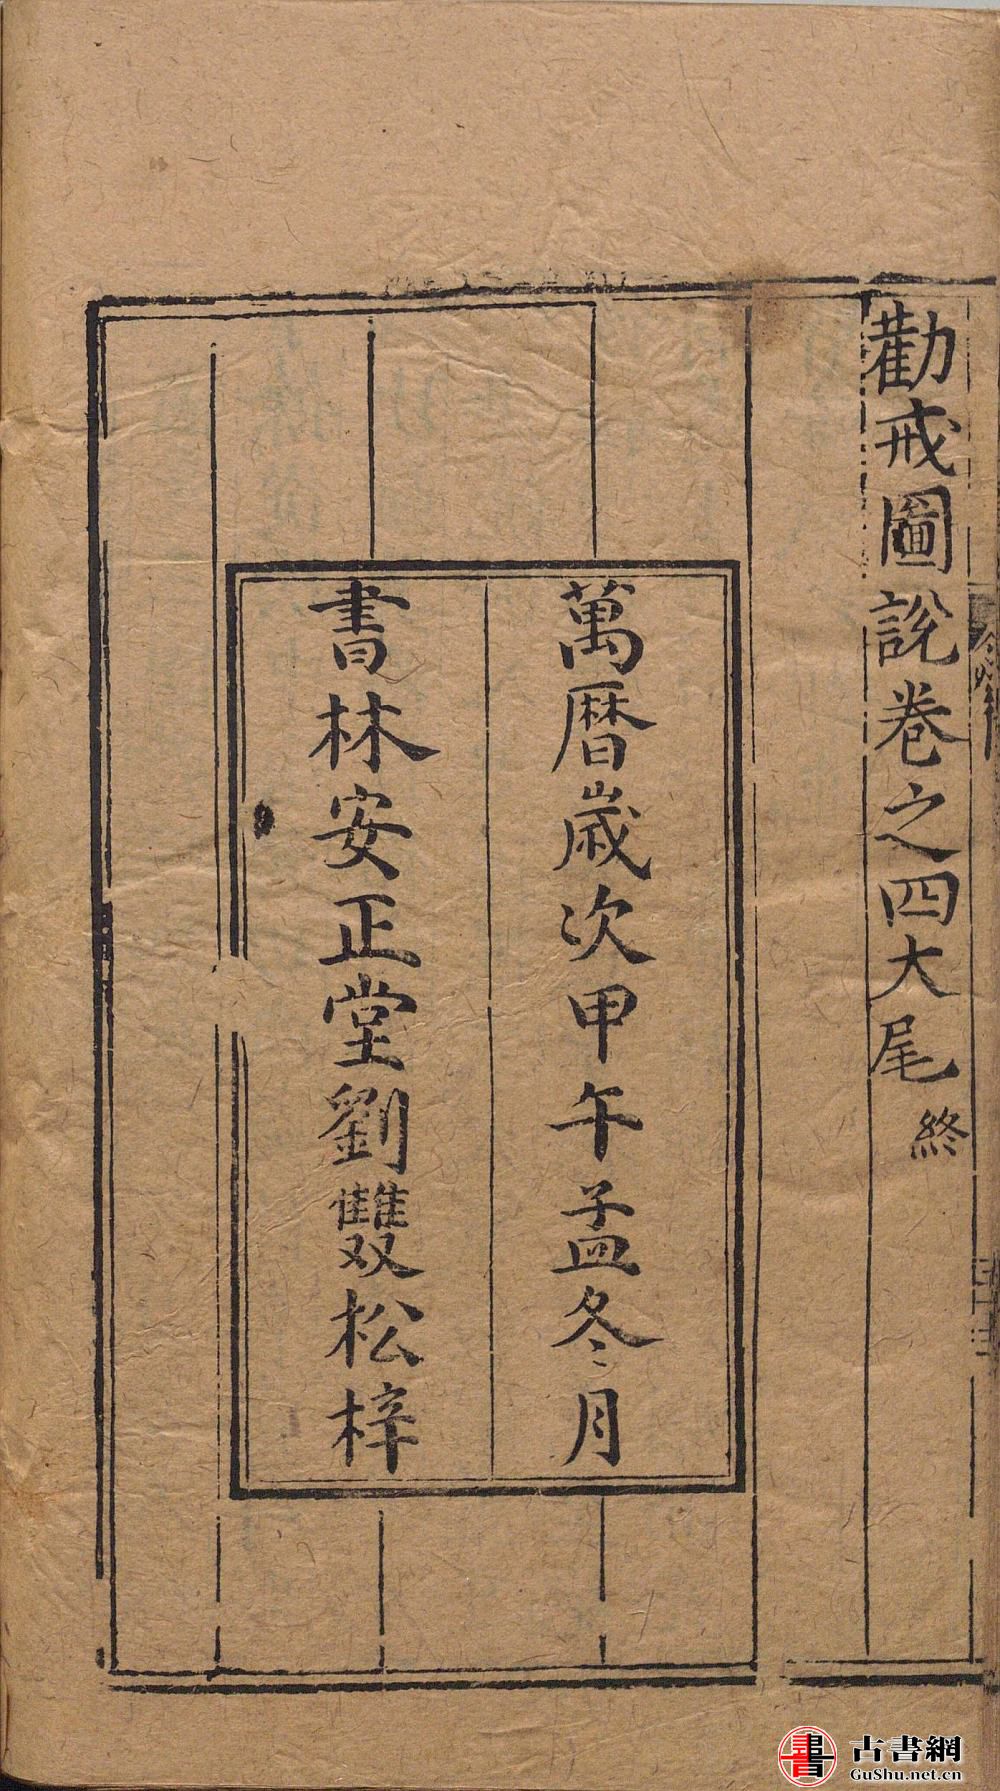 勸戒圖說卷之四大尾 終
萬曆歲次甲午孟冬月
書林安正堂劉雙松梓
古書網
GuShu.net.cn